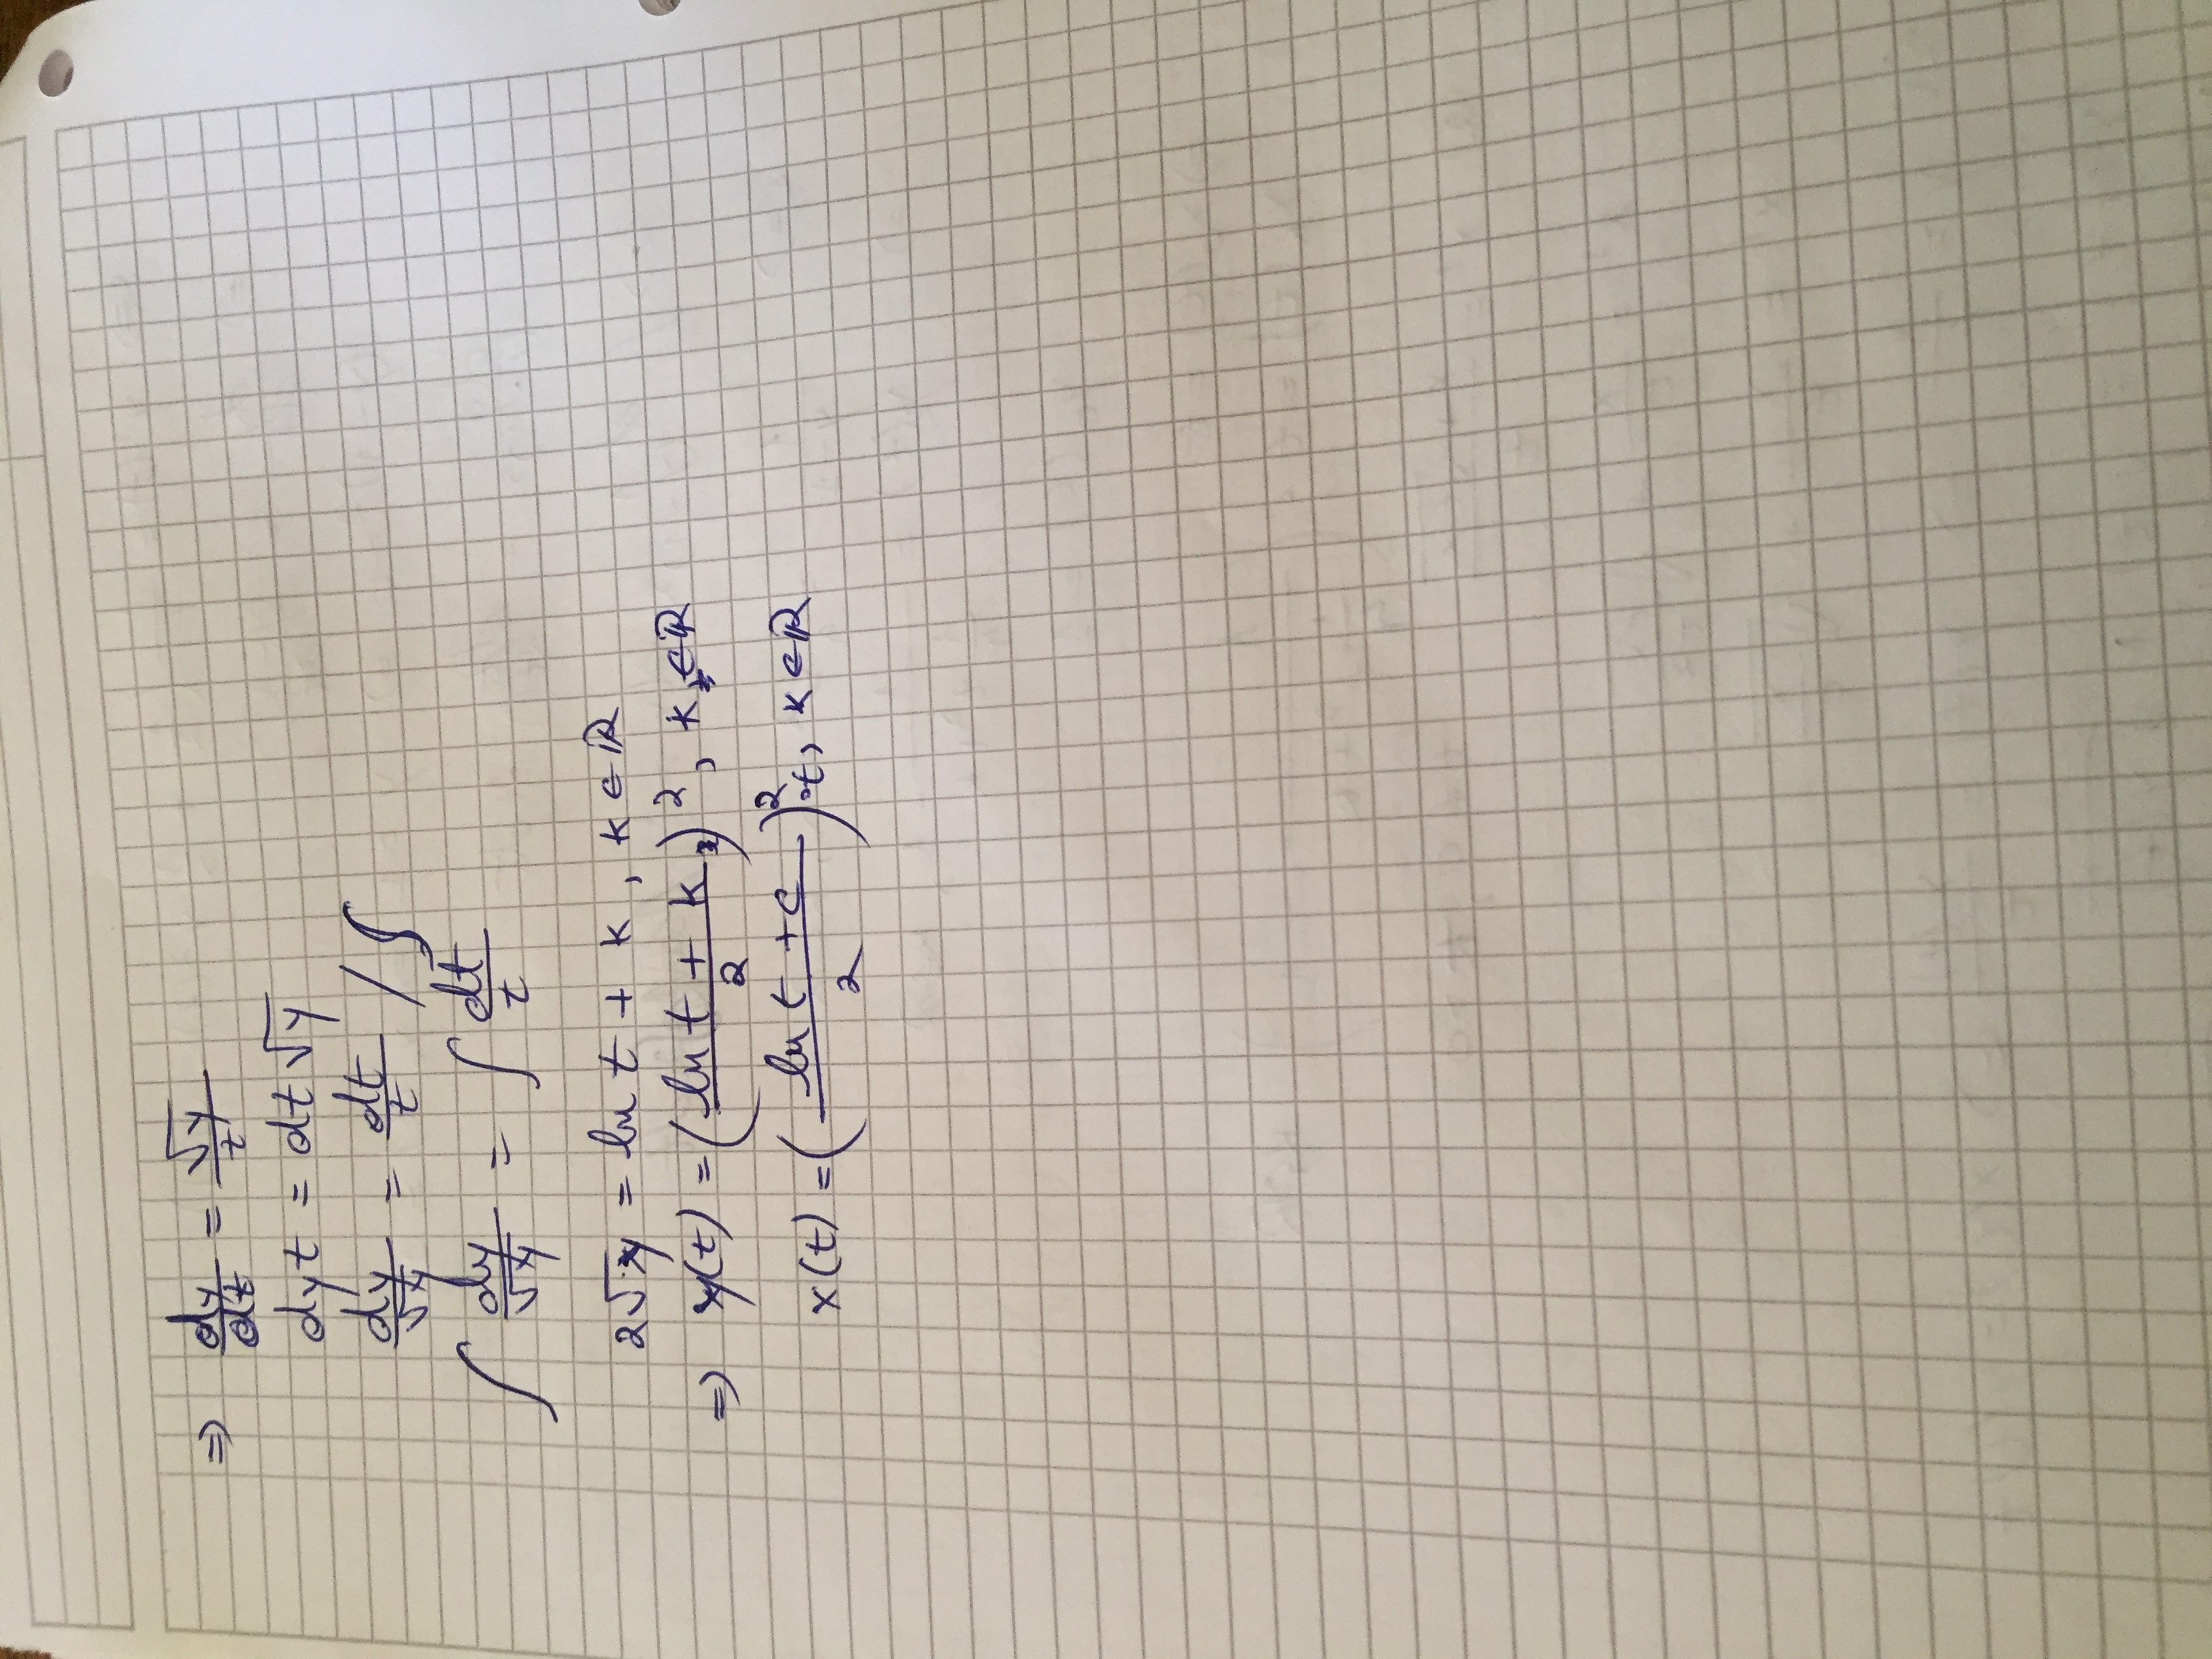 ⇒ dy/dt = √y/t
dyt = dt √y
dy/√y = dt/t / ∫
∫ dy/√y = ∫ dt/t
2√y = ln t + k , k ∈ ℝ
⇒ y(t) = (ln t + k / 2)², k ∈ ℝ
x(t) = (ln t + c / 2)² · t, k ∈ ℝ